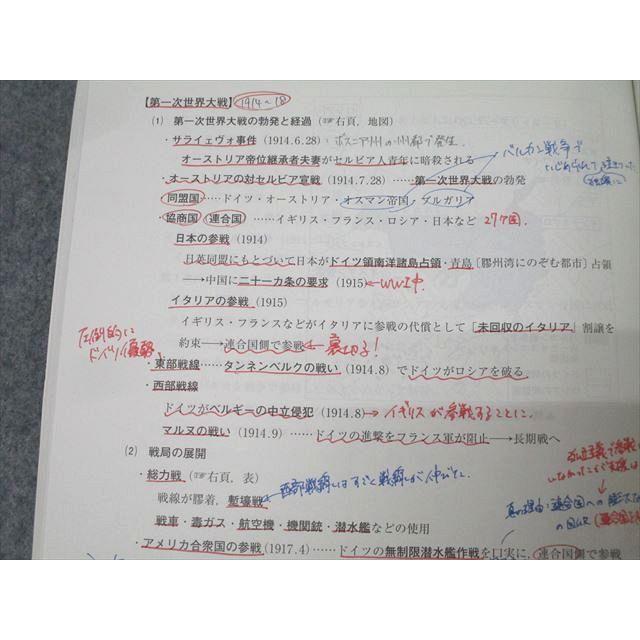 【第一次世界大戦】 1914~18
(1) 第一次世界大戦の勃発と経過(☞右頁, 地図)
・サライェヴォ事件(1914.6.28) : ボスニア州の州都で発生.
オーストリア帝位継承者夫妻がセルビア人青年に暗殺される
バルカン戦争で
・オーストリアの対セルビア宣戦(1914.7.28)……第一次世界大戦の勃発
同盟国……ドイツ・オーストリア・オスマン帝国・ブルガリア
・協商国(連合国)……イギリス・フランス・ロシア・日本など 27ヶ国.
日本の参戦(1914)
日英同盟にもとづいて日本がドイツ領南洋諸島占領・青島[膠州湾にのぞむ都市]占領
→中国に二十一カ条の要求(1915) ←WWI中.
イタリアの参戦(1915)
イギリス・フランスなどがイタリアに参戦の代償として「未回収のイタリア」割譲を
約束→連合国側で参戦 ←裏切る!
圧倒的に
ドイツ優勢
・東部戦線……タンネンベルクの戦い(1914.8)でドイツがロシアを破る.
・西部戦線
ドイツがベルギーの中立侵犯(1914.8) → イギリスが参戦することに.
マルヌの戦い(1914.9)……ドイツの進撃をフランス軍が阻止→長期戦へ
(2) 戦局の展開
・総力戦(☞右頁, 表)
西部戦線はすごく戦線が伸びた
戦線が膠着, 塹壕戦
戦車・毒ガス・航空機・機関銃・潜水艦などの使用
真の理由:連合国への
・アメリカ合衆国の参戦(1917.4)……ドイツの無制限潜水艦作戦を口実に, 連合国側で参戦